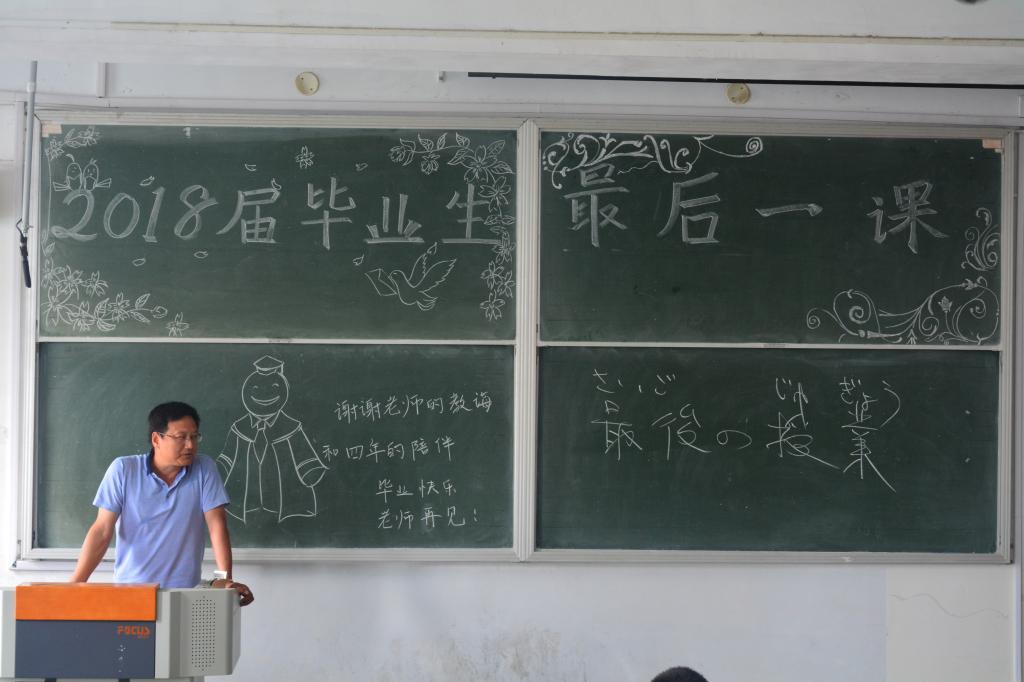 2018届毕业生
最后一课
谢谢老师的教诲
和四年的陪伴
毕业快乐
老师再见!
さいご じゅ ぎょう
最後の授業
FOCUS